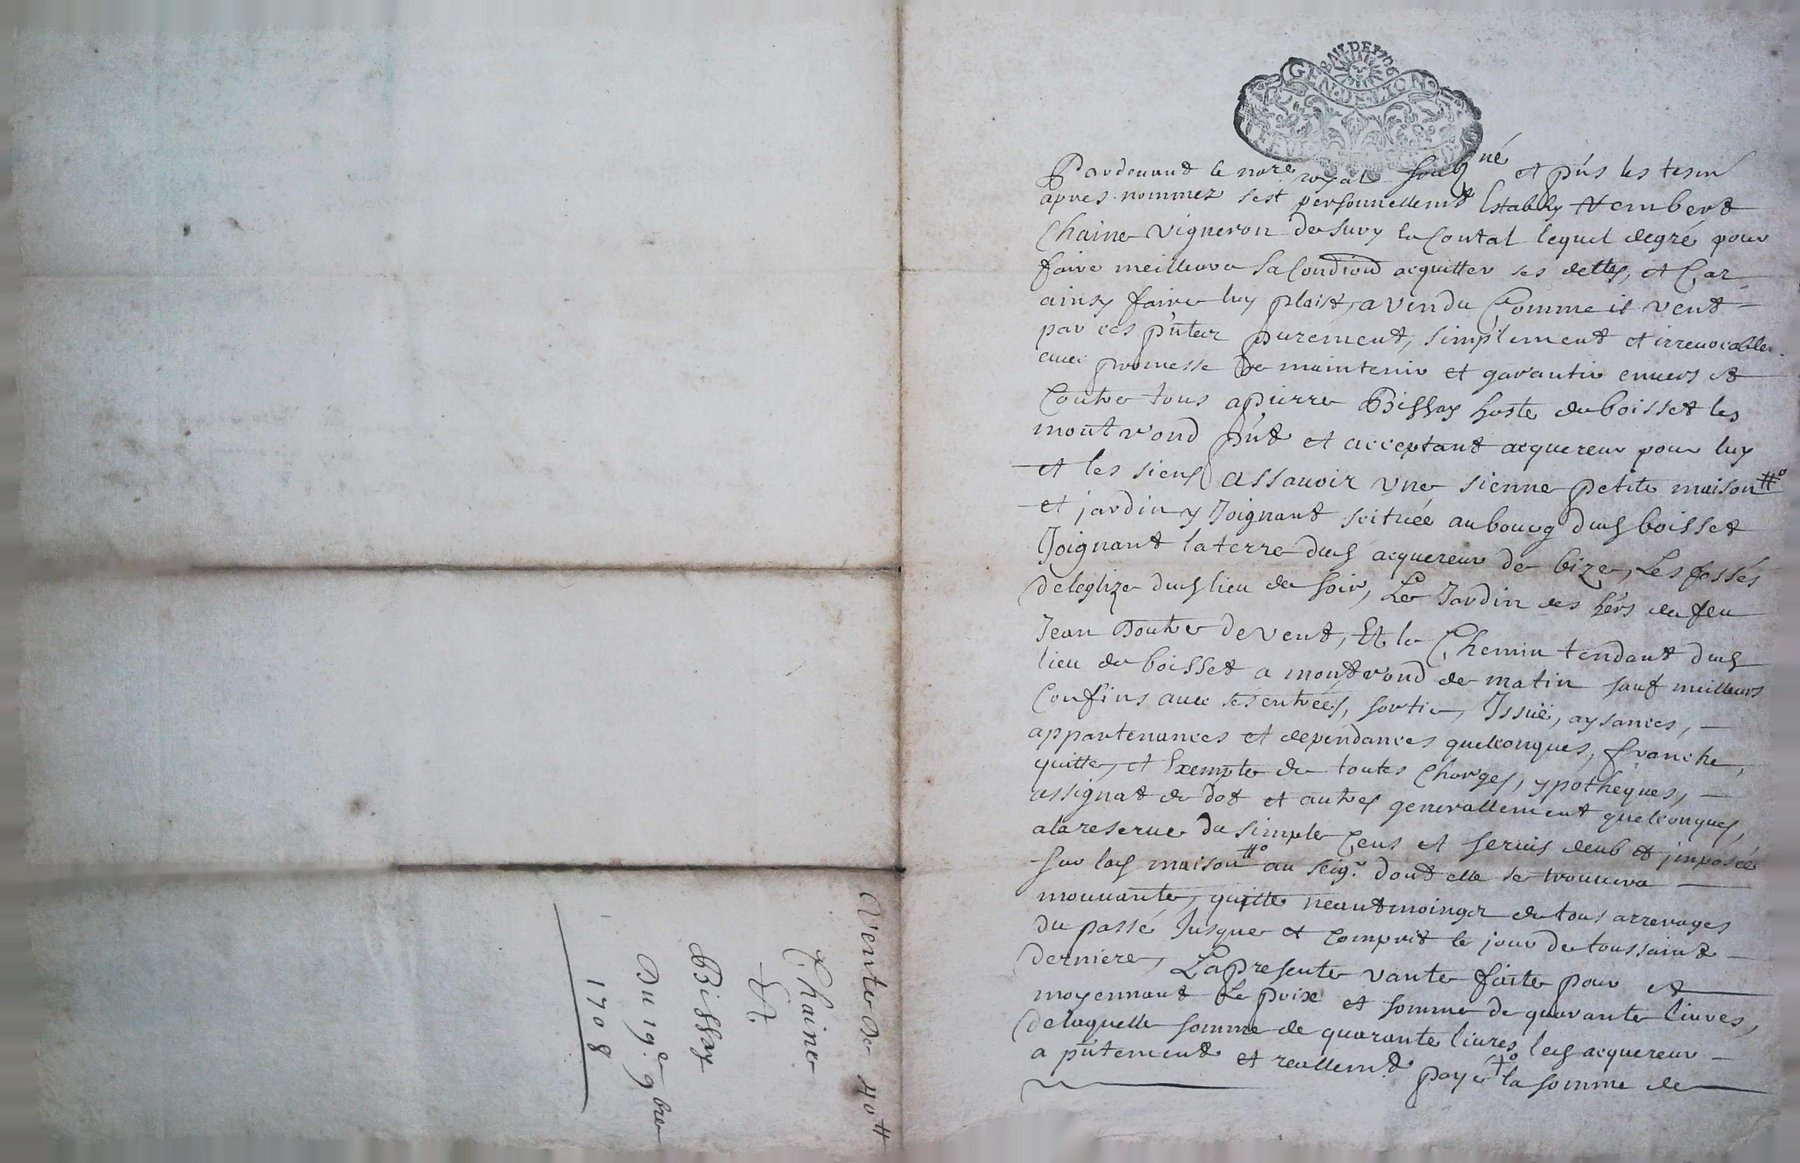 BAIL DE 1706
GEN · DE · LION
Pardeuant le no.re royal soubz.né et p'ns les tesm
apres nommez s'est personnellem.t Estably Nembert
Chaine vigneron de Sury le Contal lequel degré pour
faire meilleure sa Condiond acquitter ses dettes, et Car
ainsy faire luy plaist, a vendu Comme il vent
par ces p'ntes purement, simplement et irreuocable.
auec promesse de maintenir et garantir enuers et
Contre tous a pierre Bissay hoste de boisset les
montrond p'nt et acceptant acquereur pour luy
et les siens assauoir une sienne petite maison #o
et jardin y Joignant scituée au bourg dud boisset
Joignant la terre dud acquereur de bize, Les fossés
de leglize dud lieu de soir, Le Jardin des hers de feu
Jean Doutre de vent, Et le Chemin tendant dud
lieu de boisset a montrond de matin sauf meilleurs
Confins auec ses entrées, sortie, Issuë, aysances,
appartenances et dependances quelconques, franche,
quitte, et Exempte de toutes Charges, ypotheques,
assignat de dot et autres generallement quelconques,
a la reserue du simple Cens et seruis deub et imposée
sur lad maison #o au seig.r dont elle se trouuera
mouuante, quitte neantmoinger de tous arrerages
du passé Jusque et Comprit le jour de toussaint
derniere, La presente vante faite pour et
moyennant Le prix et somme de quarante liures,
de laquelle somme de quarante liures led acquereur
a p'ntement et reallem.t payé +o la somme de
Vente de 40 #
Chaine
Et
Bissay
Du 19.e 9bre
1708